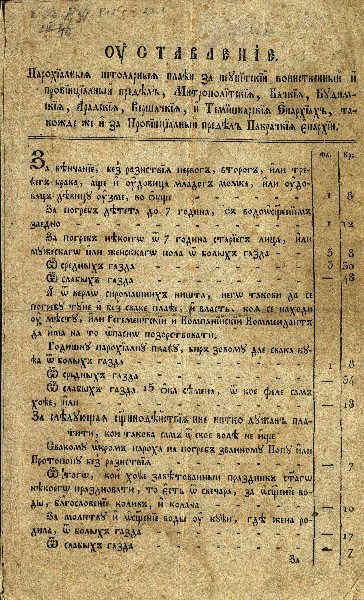 ОУСТАВЛЕНІЕ.
Парохіалныя штоларныя плаћи за неунитскій воинственный и
провінціалный предѣлъ, Митрополитскія, Бачкія, Будим-
скія, Арадскія, Вершачкія, и Темишварскія Епархіахъ, та-
кожде же и за Провінціалный предѣлъ Пакрачкія Епархіи.
Фл. Кр.
За вѣнчаніе, без̾ разнствія первогъ, второгъ, или тре-
ћегъ брака, аще и оудовица младогъ момка, или оудо-
вацъ дѣвицу оузме, во обще - - - 1 8
За погребъ дѣтета до 7 година, съ водоѡсщеніемъ
заедно - - - - - - 12
За погребъ нѣкоегѡ ѿ 7 година старіегъ лица, или
мужескагѡ или женскагѡ пола ѿ болыхъ газда - 5 8
Ѿ средныхъ газда - - - - 3 30
Ѿ слабыхъ газда - - - - - 48
А ѿ верлѡ сиромашнихъ ништа, негѡ такови да се
погребу туне и без̾ сваке плаће, и власть, коя се находи
оу мѣсту, или Регементскій и Компанійскій Коммендантъ
да има на то ѡпаснѡ позорствовати.
Годишну парохіалну плаћу, биръ зовому две свака ку-
ћа ѿ болыхъ газда - - - 1 8
Ѿ средныхъ газда - - - -
Ѿ слабыхъ газда 15 ока сѣмена, ѿ кое феле самъ
хоће, или - - - - - 18
За слѣдующая сщннодѣйствія ніе нитко дужанъ пла-
тити, кои такова самъ ѿ свое волѣ не ище
Свакому ѡкромъ пароха на погребъ званному Попу или
Протопопу без̾ разнствія - - -
Ѿ тогѡ, кой хоће завѣтованный праздникъ стагѡ
нѣкоегѡ праздновати, то есть ѿ свечара, за ѡсщеніе во-
ды, благословеніе коливъ, и колача - - 10
За молитву и ѡсщеніе воды оу кући, гдѣ жена ро-
дила, ѿ болыхъ газда - - - - 17
Ѿ слабыхъ газда - - - - 7
За